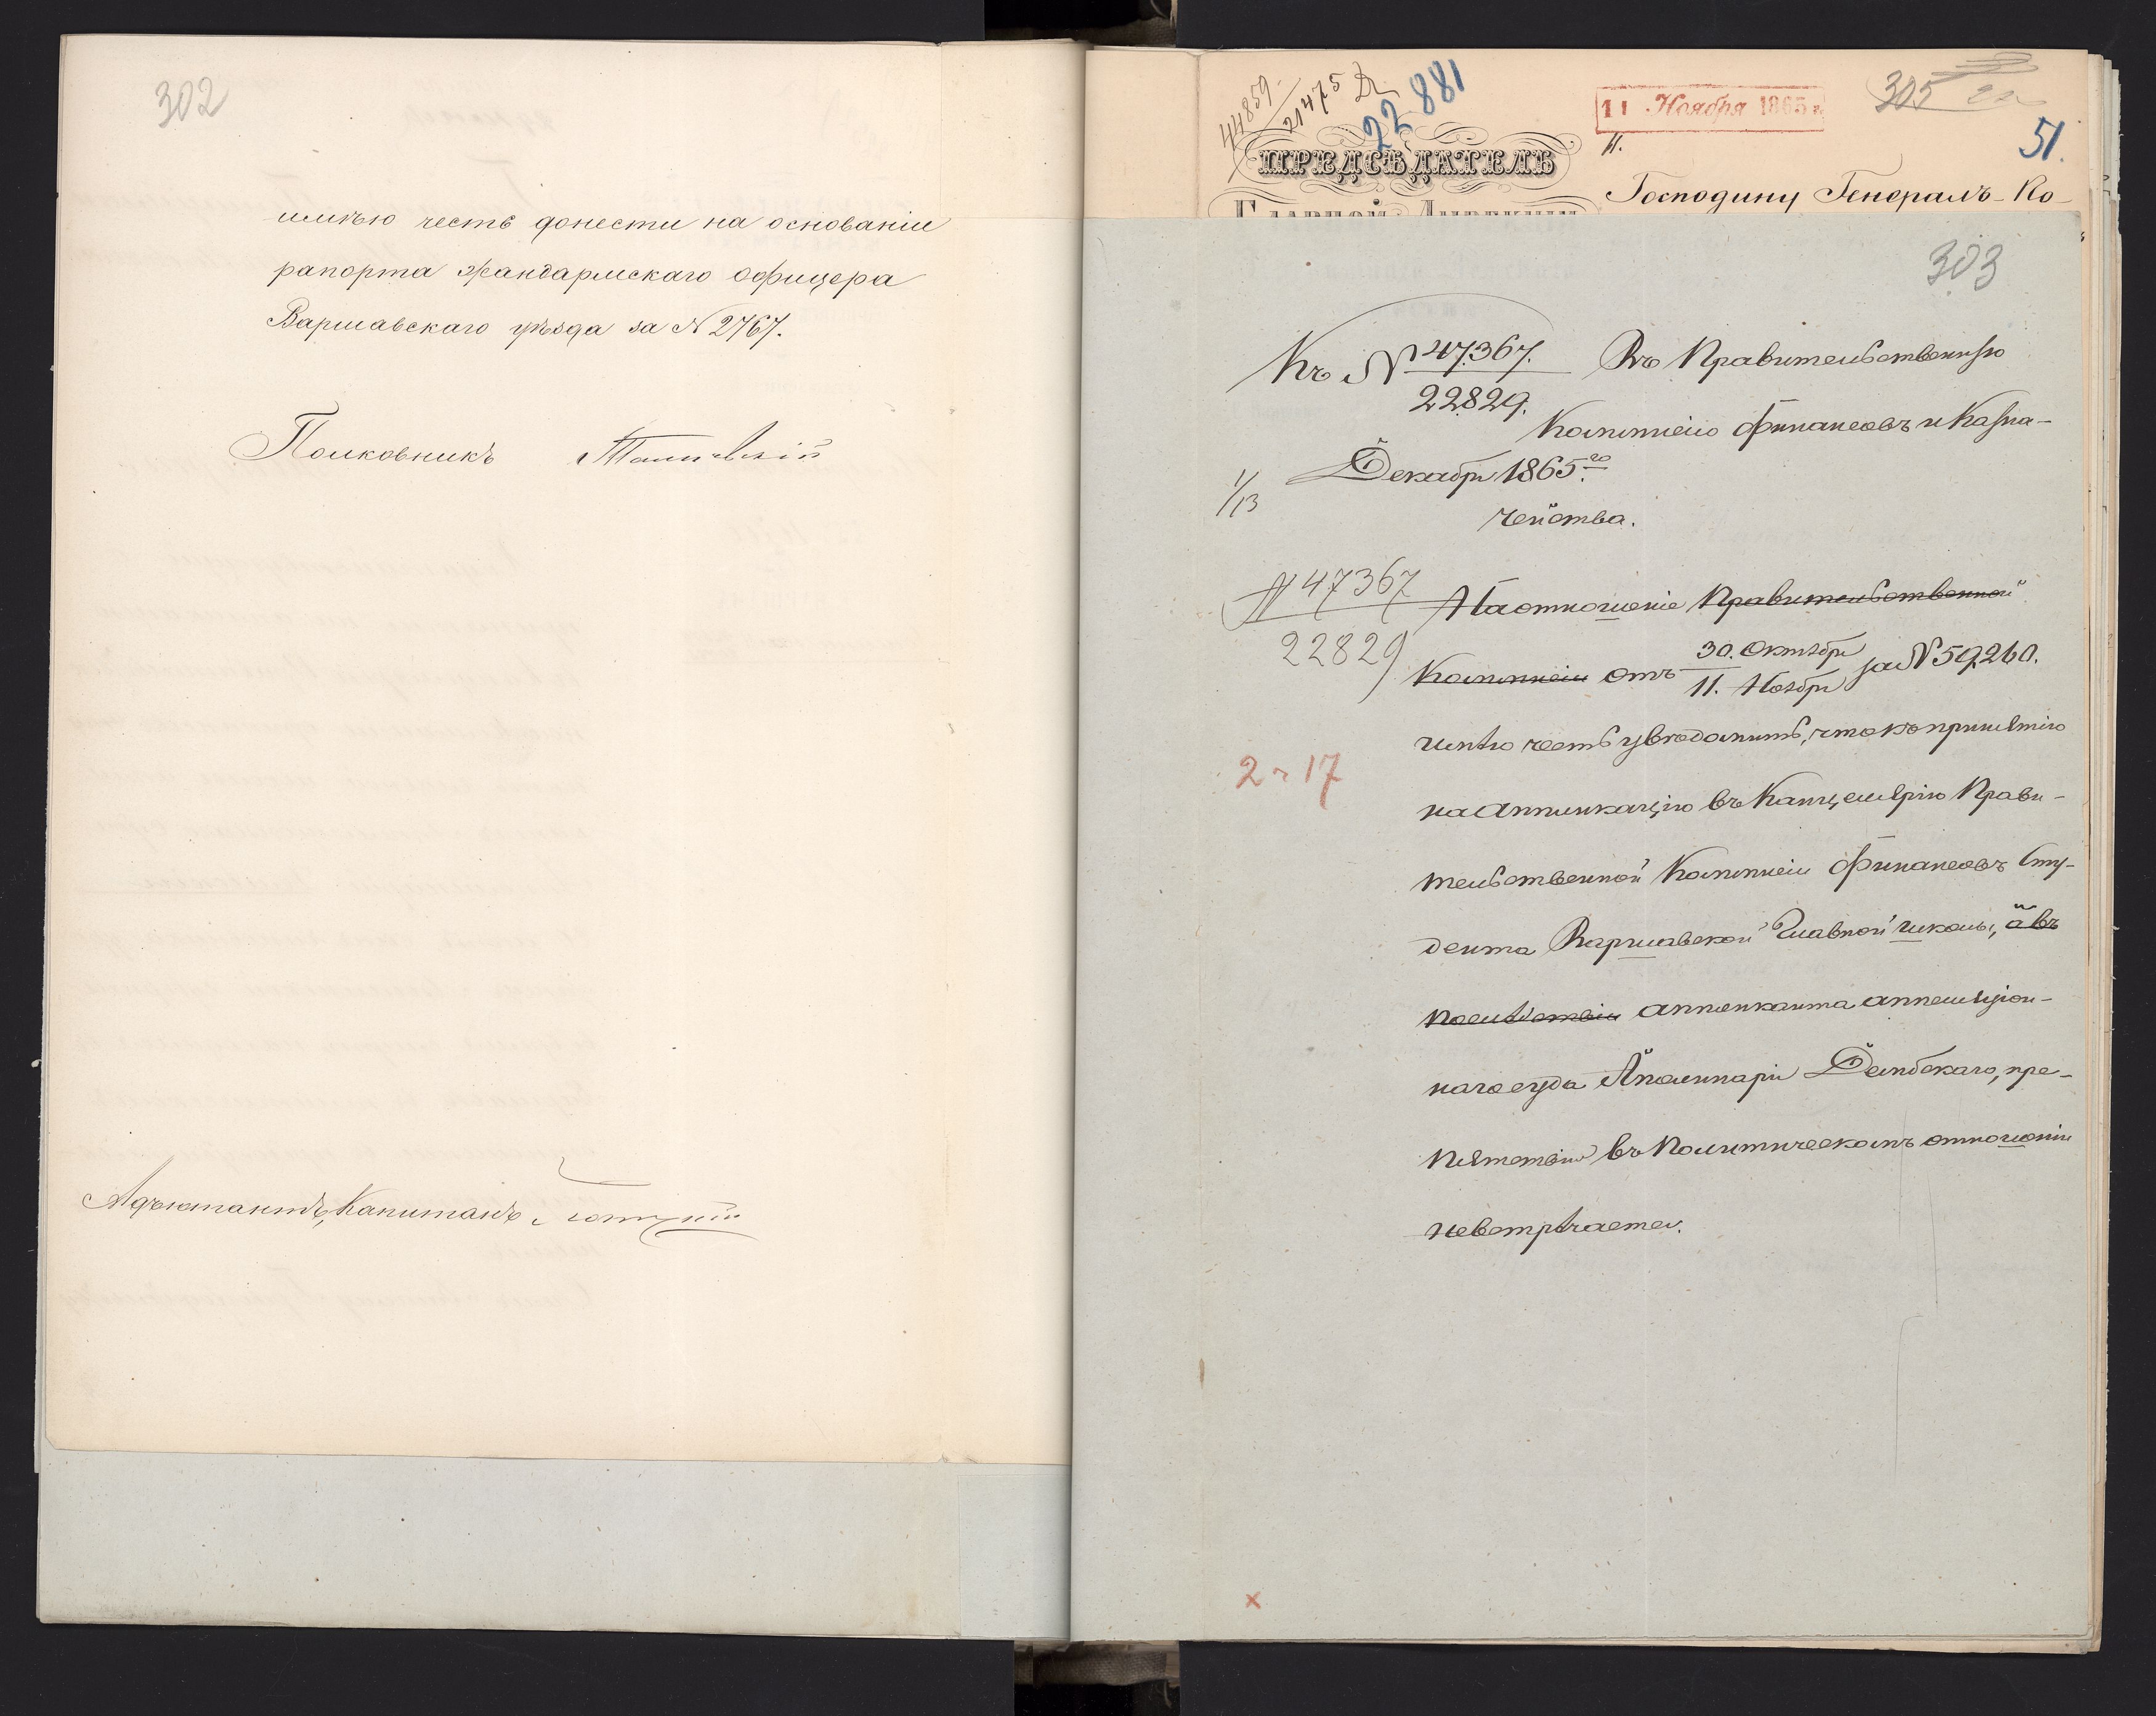 302
имѣю честь донести на основаніи
рапорта жандармскаго офицера
Варшавскаго уѣзда за N 2767.
Полковникъ
Адъютантъ, Капитанъ
44859
21475
22881
11 Ноября 1865 г.
305
51.
11.
ПРЕДСѢДАТЕЛЬ
Господину Генералъ-Ко-
303
Къ N 47367.
22829.
Въ Правительственную
Коммисію Финансовъ и Казна-
1/13 Декабря 1865 го
чейства.
N 47367
22829
На отношеніе Правительственной
Коммисіи отъ 30. Октября / 11. Ноября за N 59,260.
имѣю честь увѣдомить, что къ принятію
2 17
на аппликацію въ Канцелярію Прави-
тельственной Коммисіи Финансовъ Сту-
дента Варшавской Главной школы, а въ
послѣдствіи аппликанта аппеляціон-
наго суда Аполинарія Дембскаго, пре-
пятствій въ политическомъ отношеніи
невстрѣчается.